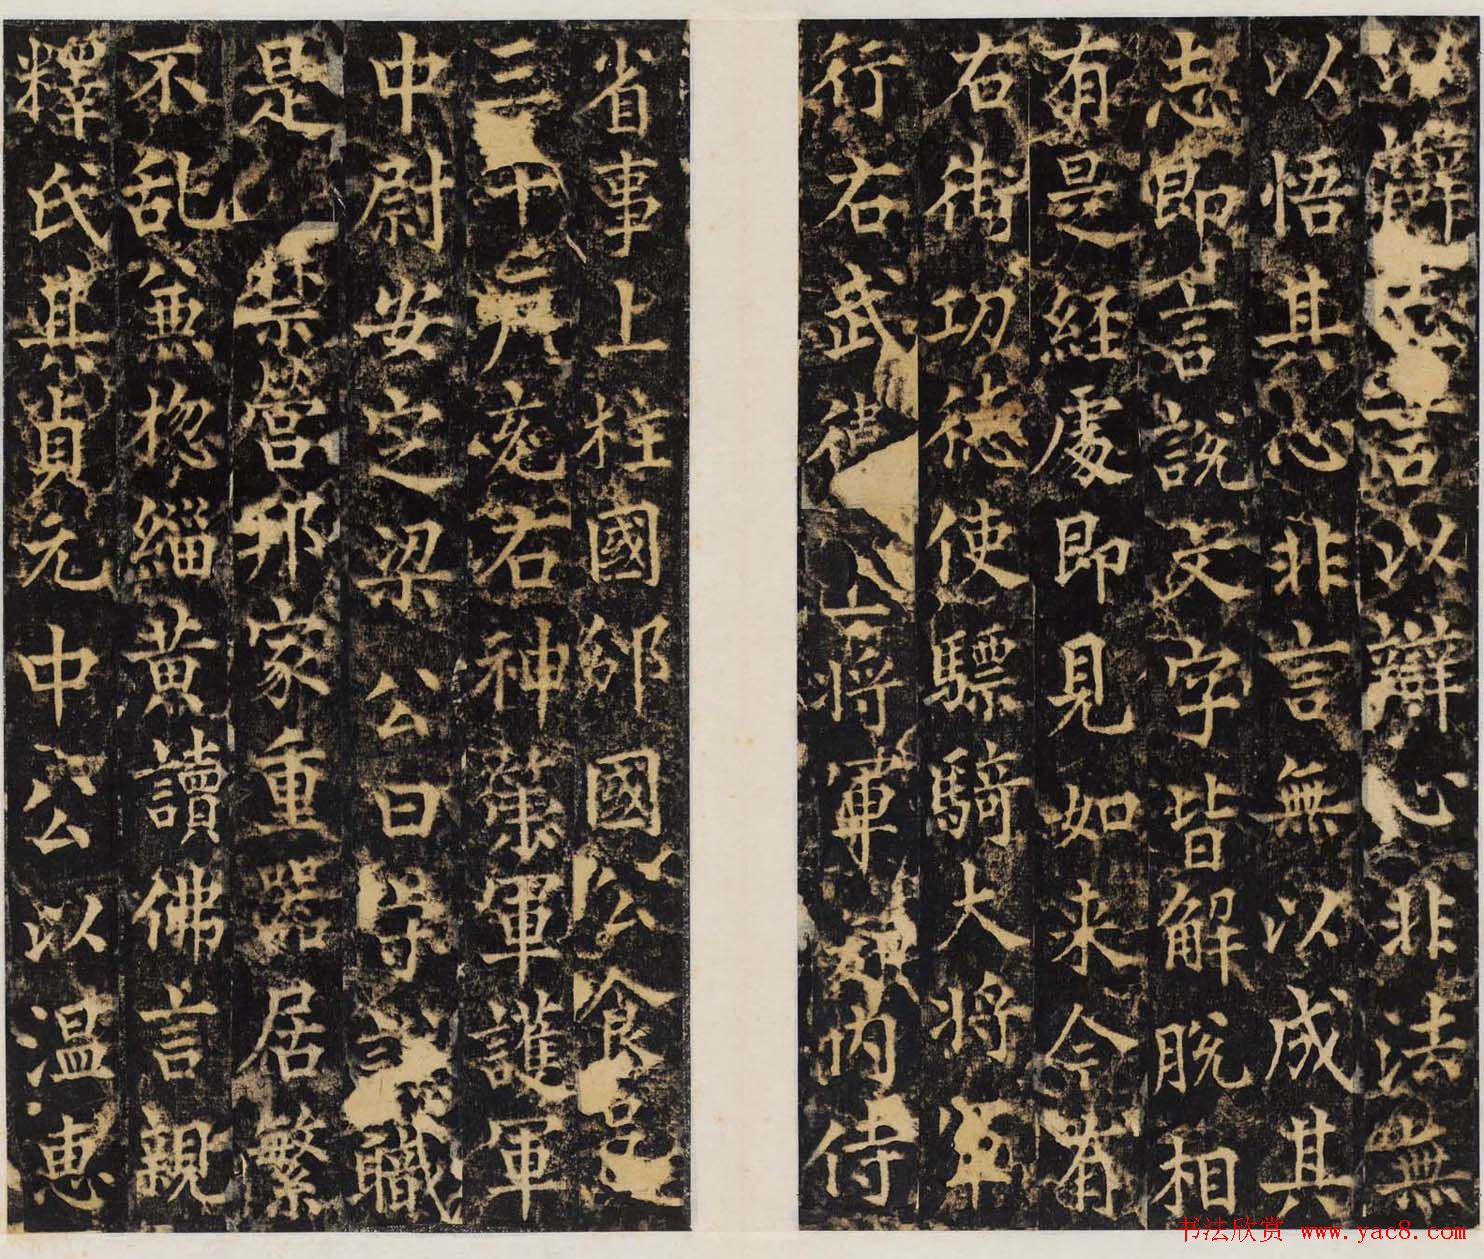 以辯志言以辯心非法無
以悟其心非言無以成其
志即言說文字皆解脫相
有是經處即見如来今有
右街功德使驃騎大將軍
行右武衛上將軍知內侍
省事上柱國邠國公食邑
三千戶充右神策軍護軍
中尉安定梁公曰守謙職
是禁營邦家重器居繁
不乱兼惣緇黃讀佛言親
釋氏其貞元中公以温惠
书法欣赏 www.yac8.com